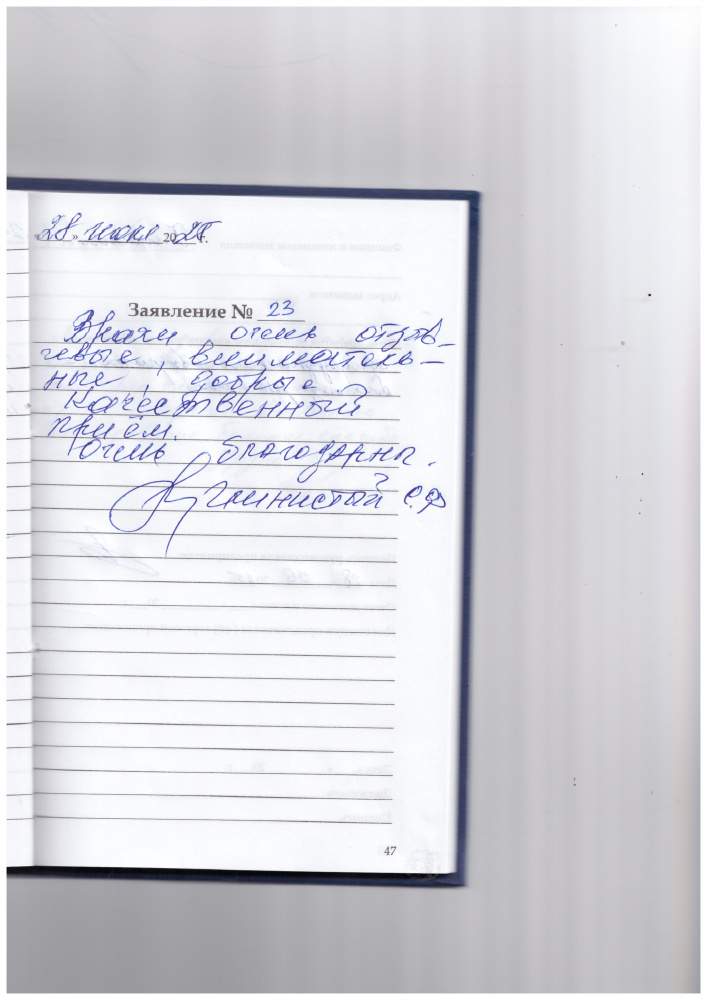 «28» июля 20 г.
Заявление № 23
Врачи очень отзыв-
чивые, вниматель-
ные, добрые.
Качественный
приём.
Очень благодарны.
Глинистый С.Ф
47